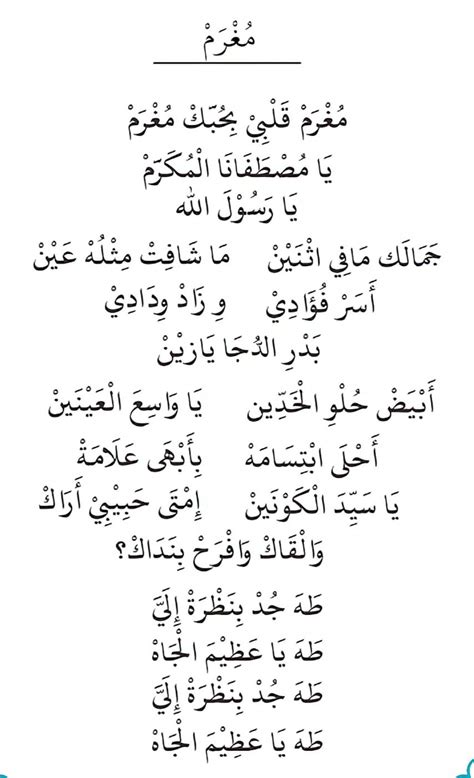 مُغْرَمْ
مُغْرَمْ قَلْبِيْ بِحُبّكْ مُغْرَمْ
يَا مُصْطَفَانَا الْمُكَرّمْ
يَا رَسُوْلَ الله
جَمَالَك مَافِي اثْنَيْنْ مَا شَافِتْ مِثْلُهْ عَيْنْ
أَسَرْ فُؤَادِيْ وِ زَادْ وِدَادِيْ
بَدْرِ الدُّجَا يَازِيْنْ
أَبْيَضْ حُلْوِ الْخَدِّين يَا وَاسِعَ الْعَيْنَيِنْ
أَحْلَى ابْتِسَامَهْ بِأَبْهَى عَلَامَةْ
يَا سَيِّدَ الْكَوْنَيْنْ إِمْتَى حَبِيْبِيْ أَرَاكْ
وَالْقَاكْ وَافْرَحْ بِنَدَاكْ؟
طَهَ جُدْ بِنَظْرَةْ إِلَيَّ
طَهَ يَا عَظِيْمَ الْجَاهْ
طَهَ جُدْ بِنَظْرَةْ إِلَيَّ
طَهَ يَا عَظِيْمَ الْجَاهْ